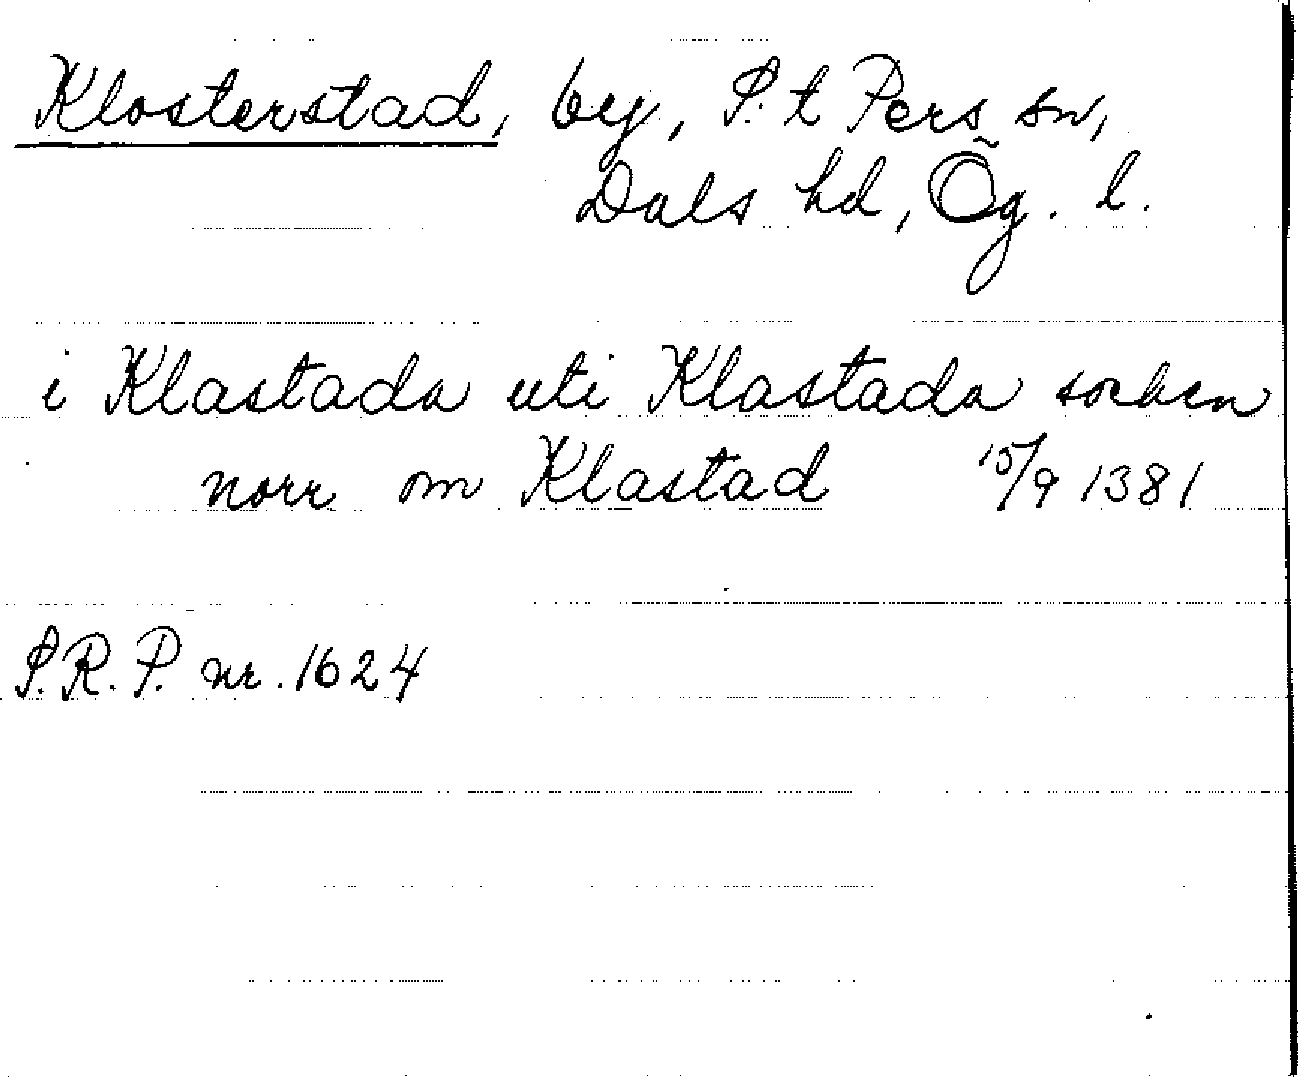 Klosterstad, by, S:t Pers sn,
Dals hd, Ög. l.
i Klastada uti Klastada socken
norr om Klastad 15/9 1381
S.R.P. nr. 1624